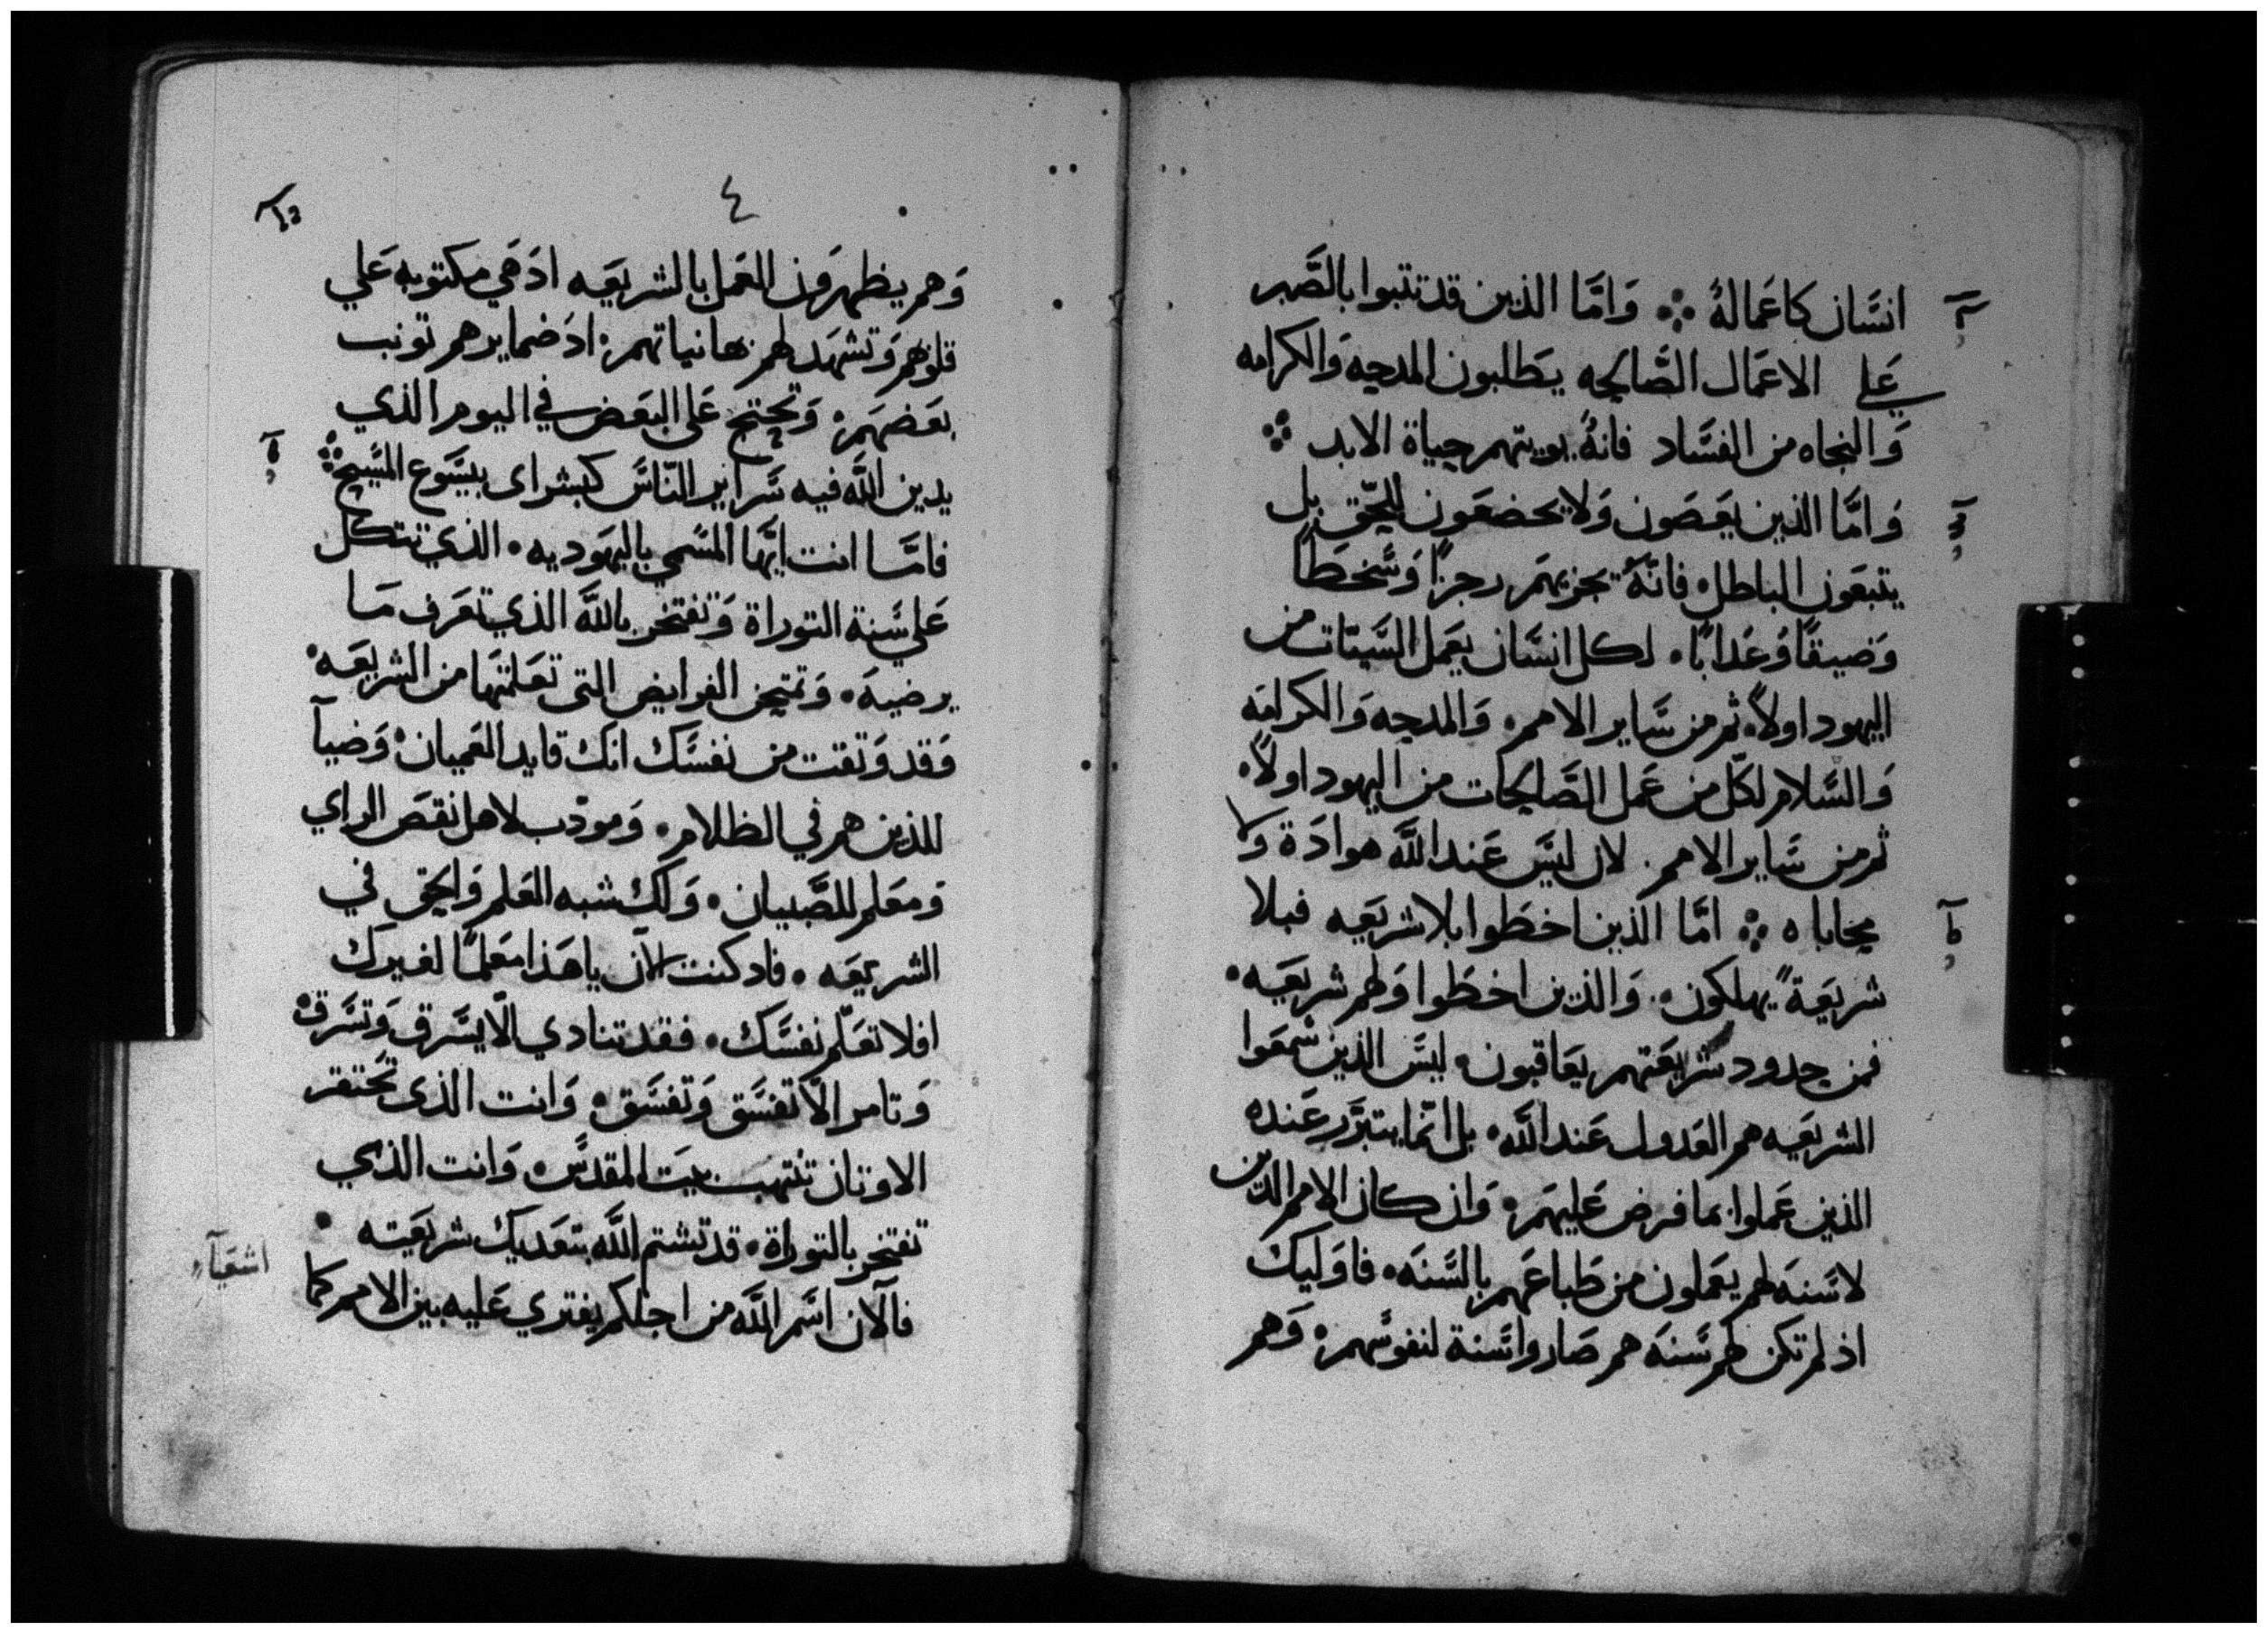 انسَان كاعَمالهُ ⁘ وَامَّا الذين قد تتبوا بالصَّبر
عَلي الاعمَال الصَّالحه يطَلبون المدحِه وَالكرامه
وَالنجاه من الفسَاد فانهُ يويتهم حِياة الابد ⁘
وَامَّا الذين يعَصَون وَلا يخضعَون للحِّق بل
يتبعَون الباطل، فانّهُ يجزيهَم رجزًا وَسَخطَا
وَضيقًا وَعَدابًا، لكل انسَان يعَمل السَّيّات من
اليهود اولاً، ثم من سَاير الامم، وَالمدحِه وَالكرامَه
وَالسَّلام لكّل من عَمل الصَّالحِات من اليهود اولاً،
ثم من سَاير الامم. لان ليسَ عَند اللَّه هوادَة وَلا
محِاباه ⁘ امَّا الذين اخطَوا بلا شريعَه فبلا
شريعَةً يهلكون، وَالذين اخطَوا وَلهم شريعَه،
فمن حِدود شريعَتهم يعَاقبون، ليسَ الذين سَمعَوا
الشريعَه هم العَدول عَند اللَّه، بل انّما يتبرَّر عَنده
الذين عَملوا بما فرض عَليهَم، وَان كان الامم الذين
لا سَنهَ لهم يعَملون من طَباعَهم بالسَّنهَ، فاوَليك
اذ لم تكن لهم سَنهَ هم صَاروا سَنة لنفوسَهم، وَهم
٤
وَهم يظهروَن العَمل بالشريعَه ادَ هَي مكتوبه عَلي
قلوبهم وَتشهَد لهم بها نياتهم، ادَ ضمايرهم تونب
بعَضهَم، وَتحِتج عَلي البعَض في اليوم الذي
يدين اللَّه فيه سَراير النّاسَ كبشراى بيسَوع المسَيح ⁘
فامَّا انت ايُّها المسَمي باليهَوديه، الذي تتكل
عَلي سَنة التوراة وَتفتخر باللَّه الذي تعَرف مَا
يرضيهَ، وَتمتحِن الفرايض التى تعَلمتهَا من الشريعَه،
وَقد وَتقت من نفسَك انك قايد العَميان، وَضيآ
للذين هم في الظلام، وَمودّب لاهل نقصَ الراي
وَمعَلم للصَّبيان، وَلك شبه العَلم وَالحِق في
الشريعَه، فاد كنت الآن يا هَذا معَلمًا لغيرك
افلا تعَلّم نفسَك، فقد تنادي الّا يسَرق وَتسَرق،
وَتامر الّا تفسَق وَتفسَق، وَانت الذى تحَتقر
الاوتان تنتهَب بيتَ المقدسَ، وَانت الذي
تفتخر بالتوراة، قد تشتم اللَّه بتعَديك شريعَته،
فالآن اسَم اللَّه من اجلكم يفتري عَليه بين الامم كما
اشعَيآء